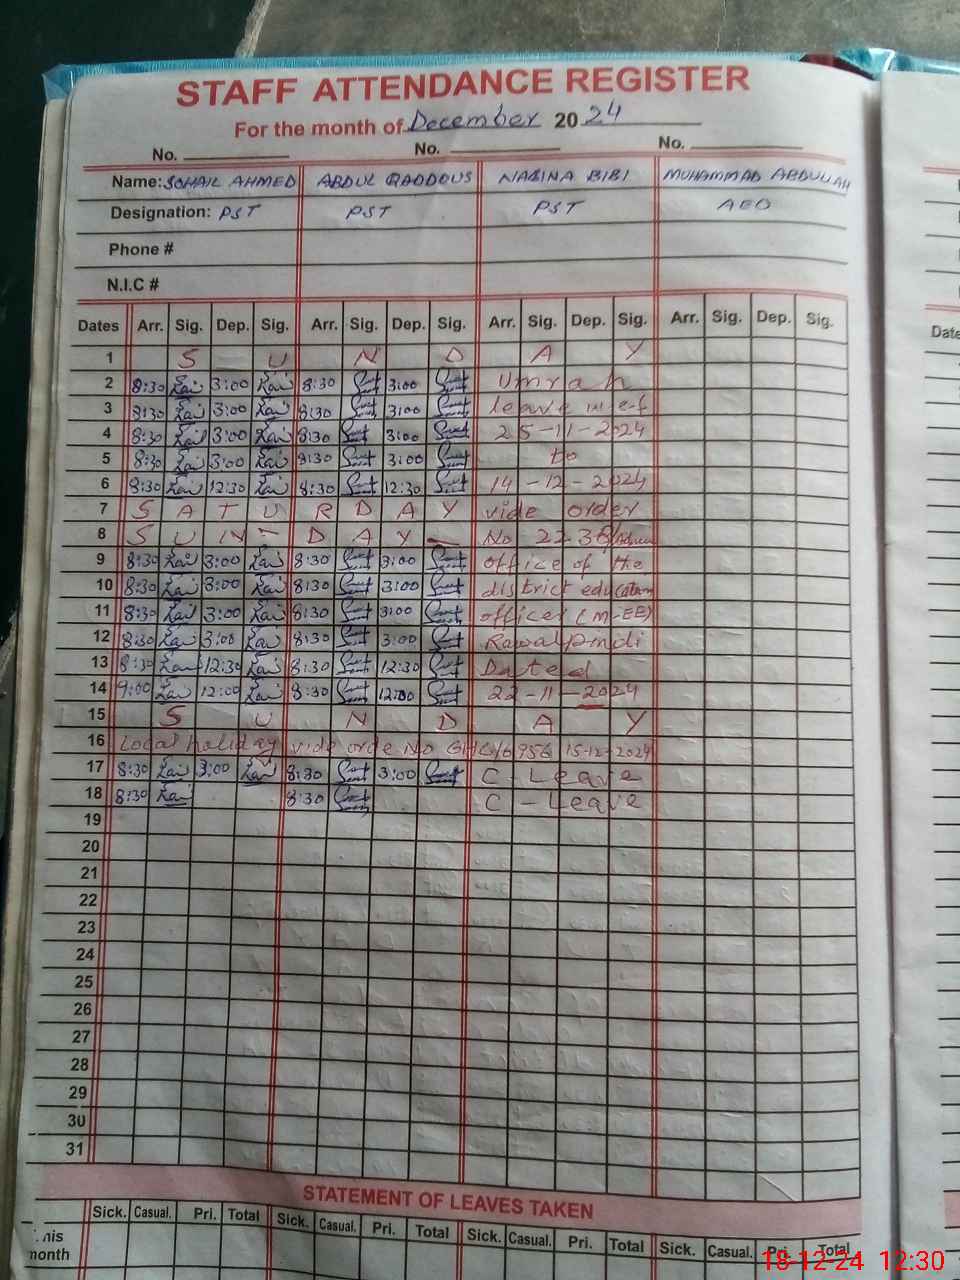 STAFF ATTENDANCE REGISTER
For the month of December 2024
No. No. No.
Name: SOHAIL AHMED ABDUL QADDOUS NAGINA BIBI MUHAMMAD ABDULLAH
Designation: PST PST PST AEO
Phone #
N.I.C #
Dates Arr. Sig. Dep. Sig. Arr. Sig. Dep. Sig. Arr. Sig. Dep. Sig. Arr. Sig. Dep. Sig.
1 S U N D A Y
2 8:30 3:00 8:30 3:00 Umrah
3 8:30 3:00 8:30 3:00 leave w.e.f
4 8:30 3:00 8:30 3:00 25-11-2024
5 8:30 3:00 8:30 3:00 to
6 8:30 12:30 8:30 12:30 14-12-2024
7 S A T U R D A Y vide order
8 S U N D A Y No 2238
9 8:30 3:00 8:30 3:00 office of the
10 8:30 3:00 8:30 3:00 district education
11 8:30 3:00 8:30 3:00 officer (M-EE)
12 8:30 3:00 8:30 3:00 Rawalpindi
13 8:30 12:30 8:30 12:30 Dated
14 9:00 12:00 8:30 12:00 22-11-2024
15 S U N D A Y
16 Local holiday vide orde No 15-12-2024
17 8:30 3:00 8:30 3:00 C-Leave
18 8:30 8:30 C-Leave
19
20
21
22
23
24
25
26
27
28
29
30
31
STATEMENT OF LEAVES TAKEN
Sick. Casual. Pri. Total Sick. Casual. Pri. Total Sick. Casual. Pri. Total Sick. Casual. Pri. Total
month
18-12-24 12:30